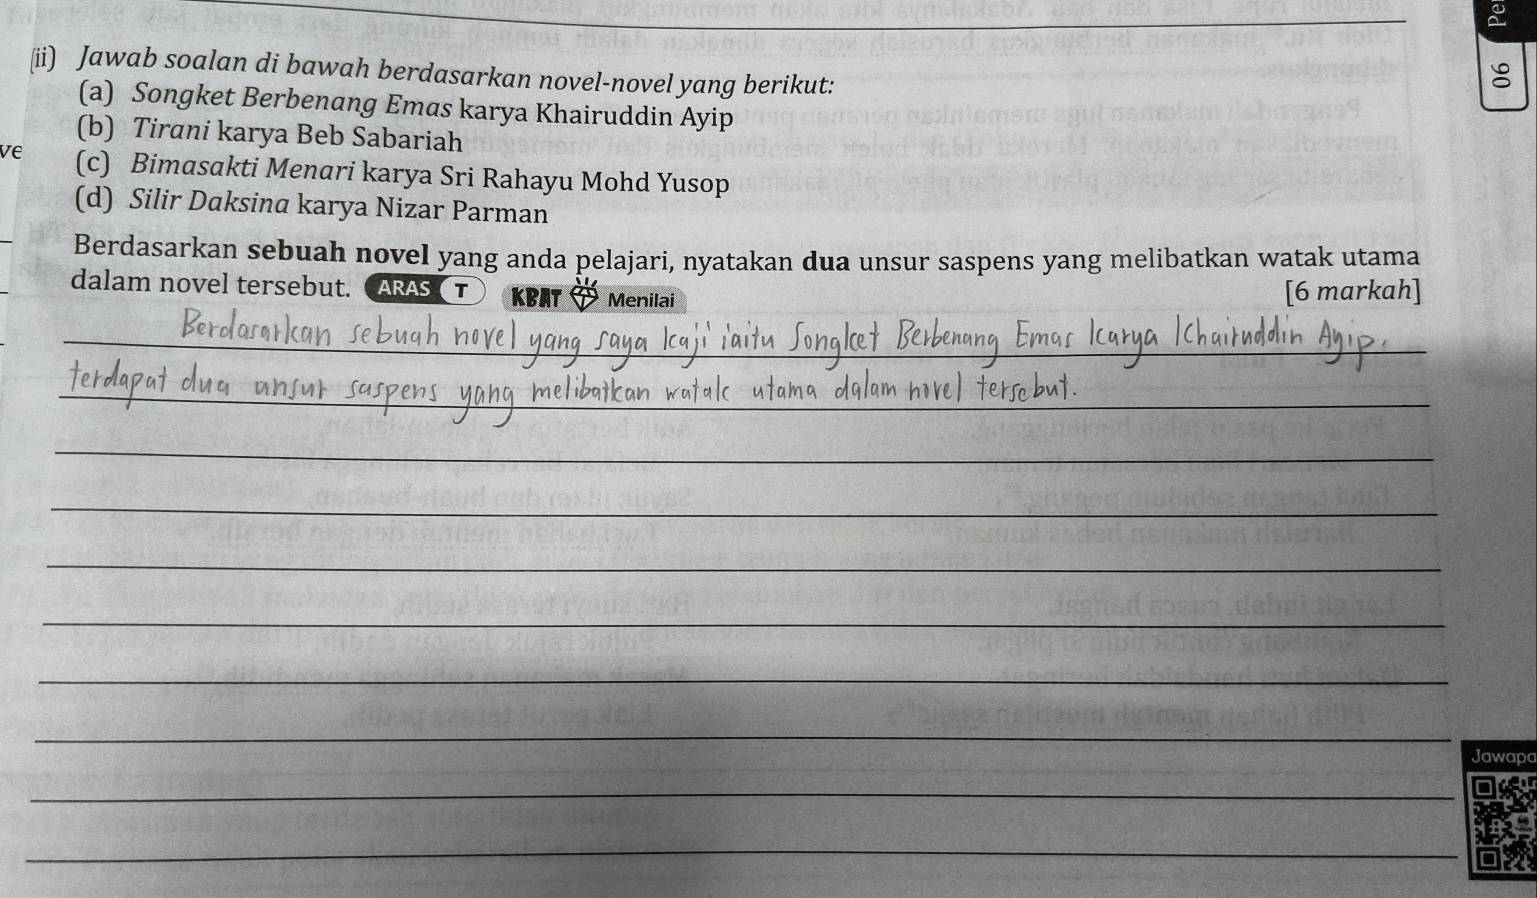 Pe
06
(ii) Jawab soalan di bawah berdasarkan novel-novel yang berikut:
(a) Songket Berbenang Emas karya Khairuddin Ayip
(b) Tirani karya Beb Sabariah
ve
(c) Bimasakti Menari karya Sri Rahayu Mohd Yusop
(d) Silir Daksina karya Nizar Parman
Berdasarkan sebuah novel yang anda pelajari, nyatakan dua unsur saspens yang melibatkan watak utama
dalam novel tersebut. ARAS T KBAT Menilai [6 markah]
Berdasarkan sebuah novel yang saya kaji iaitu Songket Berbenang Emas karya Khairuddin Ayip,
terdapat dua unsur saspens yang melibatkan watak utama dalam novel tersebut.
Jawapa